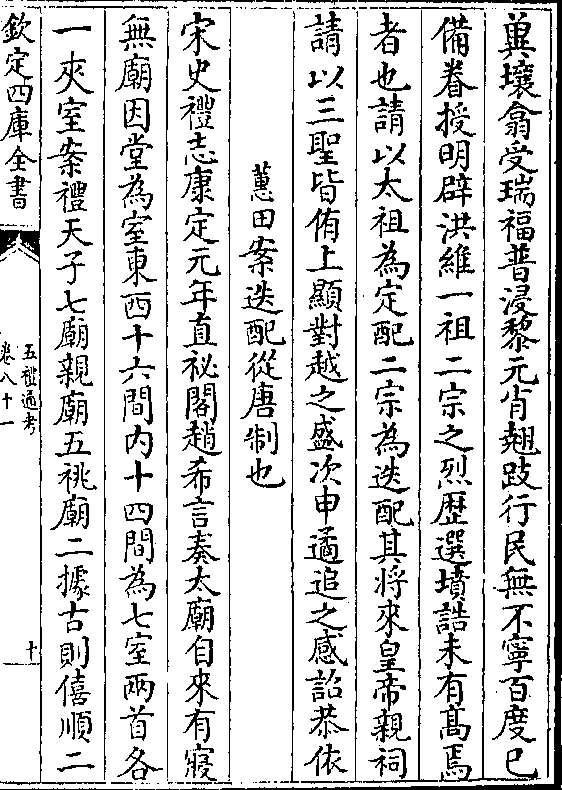 冀壤翕受瑞福普浸黎元肖翹跂行民無不寧百度已
備眷授明辟洪維一祖二宗之烈歴選墳誥未有髙焉
者也請以太祖為定配二宗為迭配其將來皇帝親祠
請以三聖皆侑上顯對越之盛次申遹追之感詔恭依
蕙田案迭配從唐制也
宋史禮志康定元年直祕閣趙希言奏太廟自來有寢
無廟因堂為室東西十六間内十四間為七室兩首各
一夾室案禮天子七廟親廟五祧廟二據古則僖順二
欽定四庫全書
五禮通考
卷八十一
十